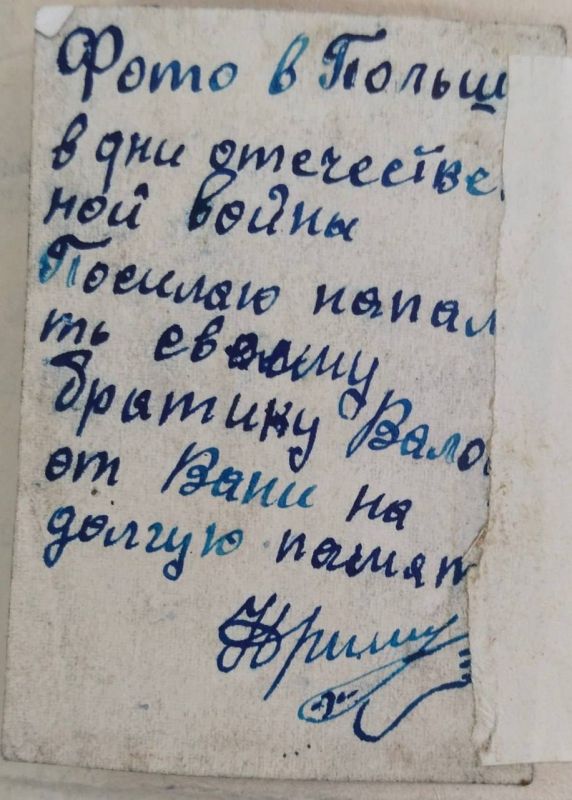 Фото в Польш
в дни отечестве
ной войны
Посилаю напам
ть своему
братику Вало
от Вани на
долгую памят